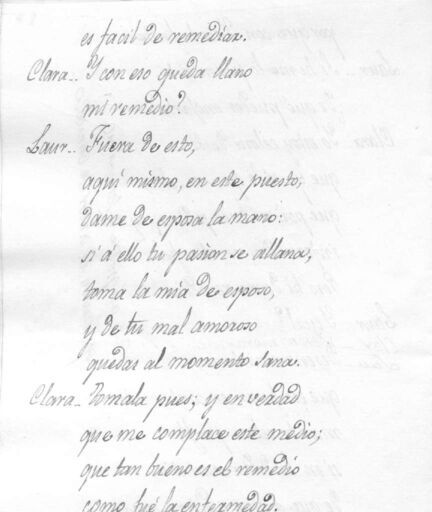 es facil de remediar.
Clara.. Y con eso queda llano
mi remedio?
Laur.. Fuera de esto,
aquí mismo, en este puesto,
dame de esposa la mano:
si á ello tu pasion se allana,
toma la mia de esposo,
y de tu mal amoroso
quedas al momento sana.
Clara.. Tomala pues; y en verdad
que me complace este medio;
que tan bueno es el remedio
como fué la enfermedad.